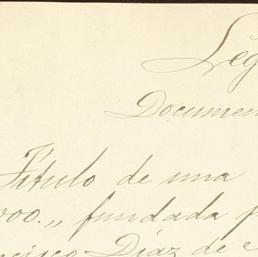 Leg
Documen
Título de una
000.,, fundada p
ncisco Díaz de